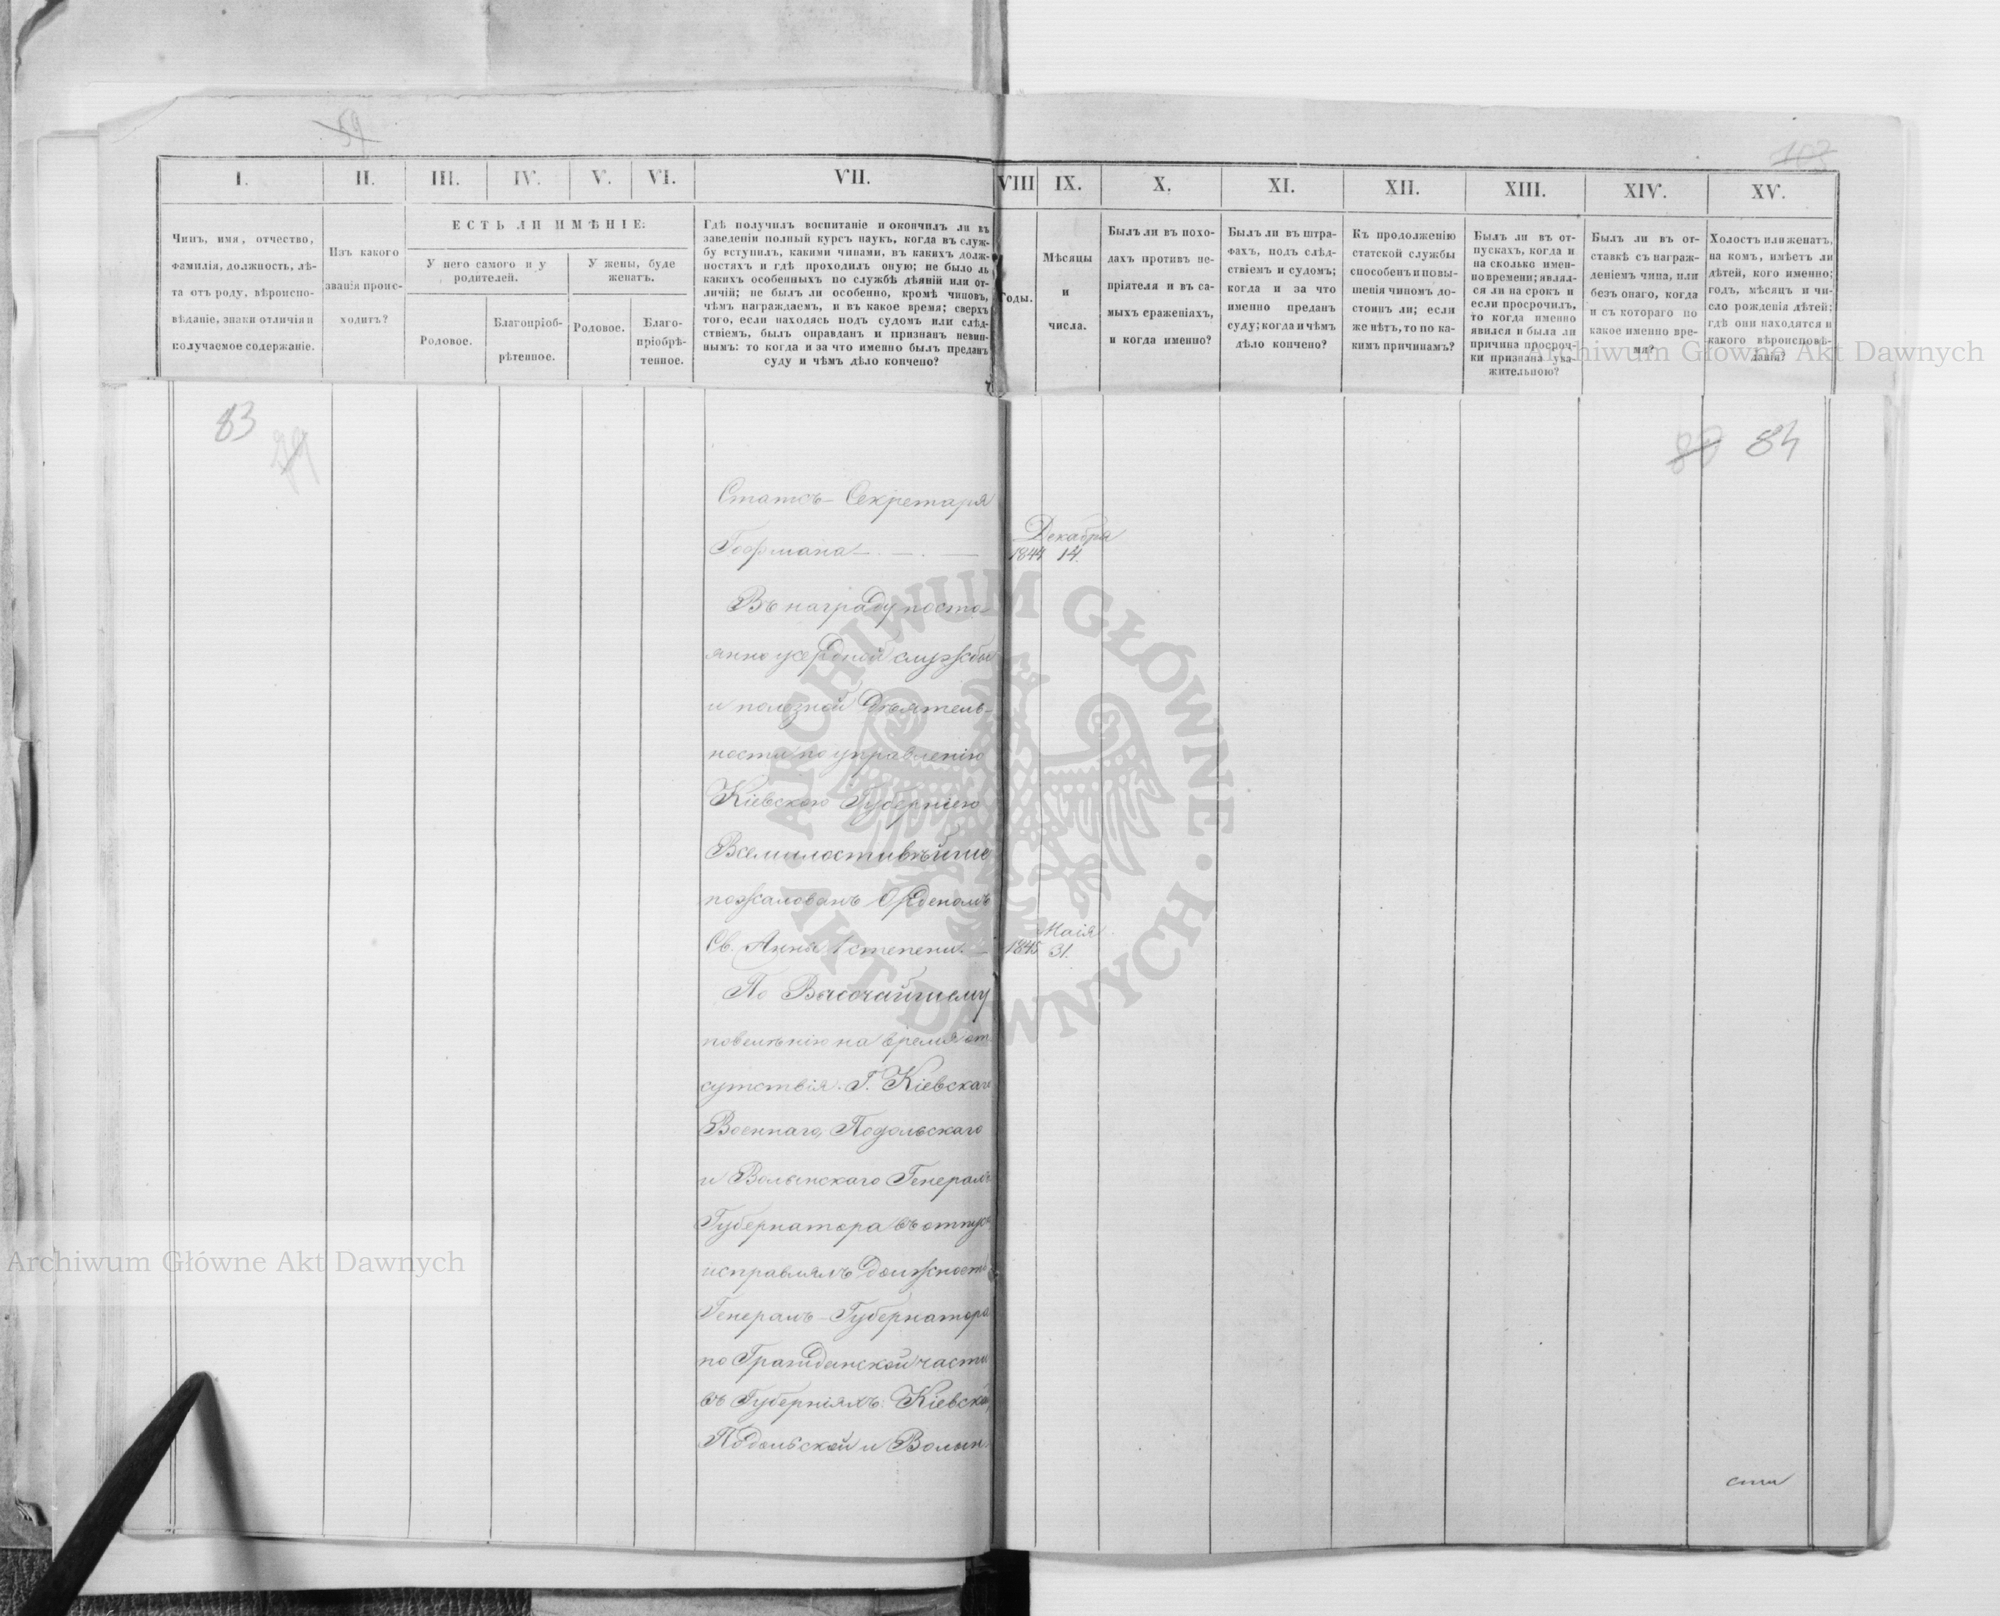 59
103
I.
II.
III.
IV.
V.
VI.
VII.
VIII
IX.
X.
XI.
XII.
XIII.
XIV.
XV.
Чинъ, имя, отчество,
фамилія, должность, лѣ-
та отъ роду, вѣроиспо-
вѣданіе, знаки отличія и
получаемое содержаніе.
Изъ какого
званія проис-
ходитъ?
ЕСТЬ ЛИ ИМѢНІЕ:
У него самого и у
родителей.
У жены, буде
женатъ.
Родовое.
Благопріоб-
рѣтенное.
Родовое.
Благо-
пріобрѣ-
тенное.
Гдѣ получилъ воспитаніе и окончилъ ли въ
заведеніи полный курсъ наукъ, когда въ служ-
бу вступилъ, какими чинами, въ какихъ долж-
ностяхъ и гдѣ проходилъ оную; не было ль
какихъ особенныхъ по службѣ дѣяній или от-
личій; не былъ ли особенно, кромѣ чиновъ,
чѣмъ награждаемъ, и въ какое время; сверхъ
того, если находясь подъ судомъ или слѣд-
ствіемъ, былъ оправданъ и признанъ невин-
нымъ: то когда и за что именно былъ преданъ
суду и чѣмъ дѣло кончено?
Годы.
Мѣсяцы
и
числа.
Былъ ли въ похо-
дахъ противъ не-
пріятеля и въ са-
мыхъ сраженіяхъ,
и когда именно?
Былъ ли въ штра-
фахъ, подъ слѣд-
ствіемъ и судомъ;
когда и за что
именно преданъ
суду; когда и чѣмъ
дѣло кончено?
Къ продолженію
статской службы
способенъ и повы-
шенія чиномъ до-
стоинъ ли; если
же нѣтъ, то по ка-
кимъ причинамъ?
Былъ ли въ от-
пускахъ, когда и
на сколько имен-
но времени; являл-
ся ли на срокъ и
если просрочилъ,
то когда именно
явился и была ли
причина просроч-
ки признана ува-
жительною?
Былъ ли въ от-
ставкѣ съ награж-
деніемъ чина, или
безъ онаго, когда
и съ котораго по
какое именно вре-
мя?
Холостъ или женатъ,
на комъ, имѣетъ ли
дѣтей, кого именно;
годъ, мѣсяцъ и чи-
сло рожденія дѣтей;
гдѣ они находятся и
какого вѣроисповѣ-
данія?
Archiwum Główne Akt Dawnych
83
79
80 84
Статсъ-Секретаря
Гофмана
Декабря
1844 14.
Въ награду посто-
янно усердной службы
и полезной дѣятель-
ности по управленію
Кіевскою Губерніею
Всемилостивѣйше
пожалованъ Орденомъ
Св. Анны 1 степени.
Маія
1845 31.
По Высочайшему
повелѣнію на время от-
сутствія Г. Кіевскаго
Военнаго, Подольскаго
и Волынскаго Генералъ
Губернатора въ отпускъ
исправлялъ должность
Генералъ-Губернатора
по Гражданской части
въ Губерніяхъ: Кіевской,
Подольской и Волын-
ARCHIWUM GŁÓWNE AKT DAWNYCH
Archiwum Główne Akt Dawnych